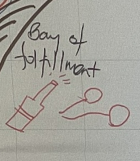 Bay of
fulfillment